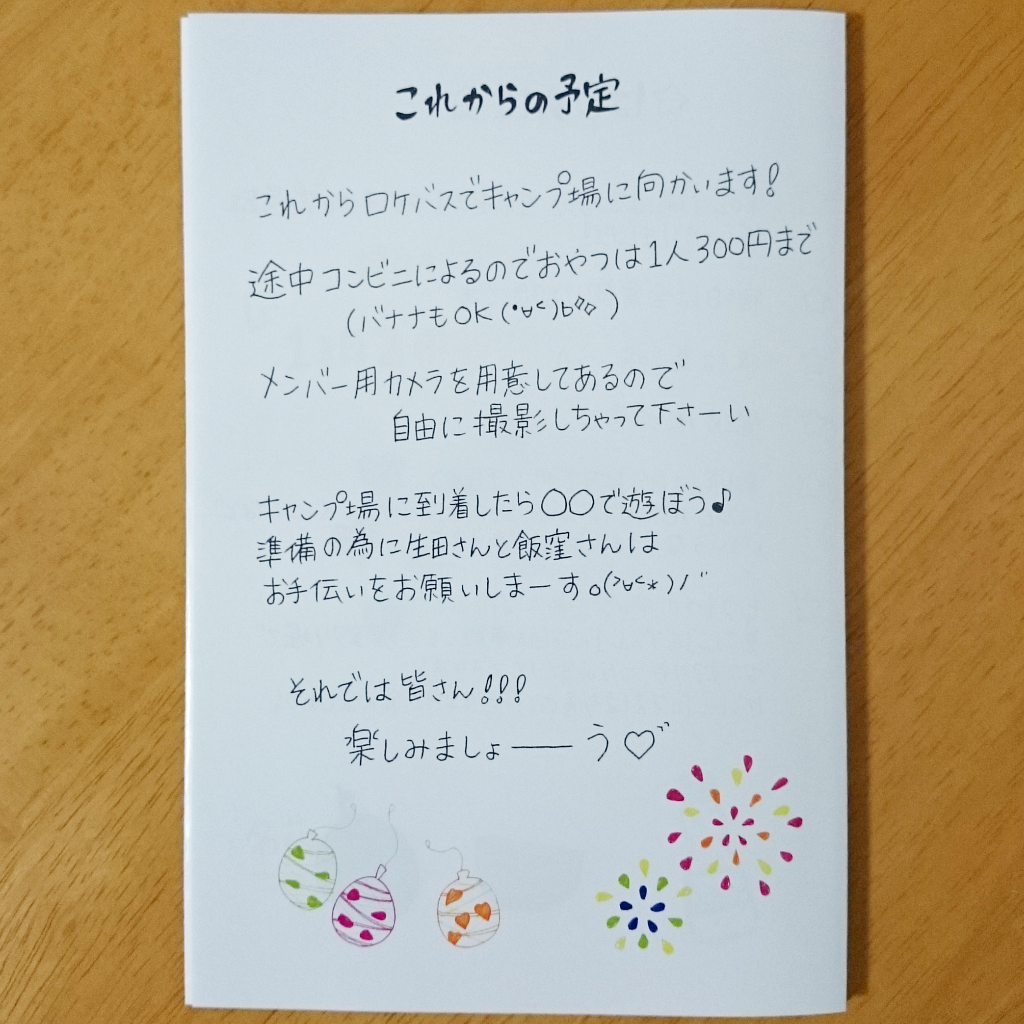 これからの予定
これからロケバスでキャンプ場に向かいます!
途中コンビニによるのでおやつは1人300円まで
(バナナもOK(•∀<)b◇◇)
メンバー用カメラを用意してあるので
自由に撮影しちゃって下さーい
キャンプ場に到着したら〇〇で遊ぼう♪
準備の為に生田さんと飯窪さんは
お手伝いをお願いしまーす。(>∀<*)ノ゛
それでは皆さん!!!
楽しみましょ——う♡゛